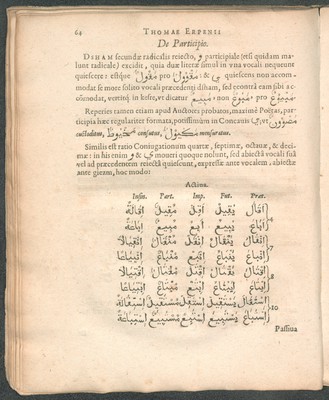 64 THOMAE ERPENII
De Participio.
DHAM secundæ radicalis reiecto, و participiale (etsi quidam ma-
lunt radicale) excidit, quia duæ literæ simul in vna vocali nequeunt
quiescere: estque مَقُولٌ pro مَقْوُولٌ: & ي quiescens non accom-
modat se more solito vocali præcedenti dham, sed contrà eam sibi ac-
cõmodat, vertitq́; in kesre, vt dicatur مَبِيعٌ, non مَبُوعٌ, pro مَبْيُوعٌ.
Reperies tamen etiam apud Auctores probatos, maximè Poëtas, par-
ticipia hæc regulariter formata, potissimùm in Concauis ي; vt مَصْوُونٌ
custoditum, مَخْيُوطٌ consutus, مَكْيُولٌ mensuratus.
Similis est ratio Coniugationum quartæ, septimæ, octauæ, & deci-
mæ: in his enim و & ي moueri quoque nolunt, sed abiectâ vocali suâ
vel ad præcedentem reiectâ quiescunt, expressæ ante vocalem; abiectæ
ante giezm, hoc modo:
Actiua.
Infin. Part. Imp. Fut. Præt.
أَقَالَ يُقِيلُ أَقِلْ مُقِيلٌ إِقَالَةٌ
أَبَاعَ يُبِيعُ أَبِعْ مُبِيعٌ إِبَاعَةٌ
4
إِنْقَالَ يَنْقَالُ إِنْقَلْ مُنْقَالٌ إِنْقِيَالًا
إِنْبَاعَ يَنْبَاعُ إِنْبَعْ مُنْبَاعٌ إِنْبِيَاعًا
7
إِقْتَالَ يَقْتَالُ إِقْتَلْ مُقْتَالٌ إِقْتِيَالًا
إِبْتَاعَ يَبْتَاعُ إِبْتَعْ مُبْتَاعٌ إِبْتِيَاعًا
8
إِسْتَقَالَ يَسْتَقِيلُ إِسْتَقِلْ مُسْتَقِيلٌ إِسْتِقَالَةٌ
إِسْتَبَاعَ يَسْتَبِيعُ إِسْتَبِعْ مُسْتَبِيعٌ إِسْتِبَاعَةٌ
10
Passiua